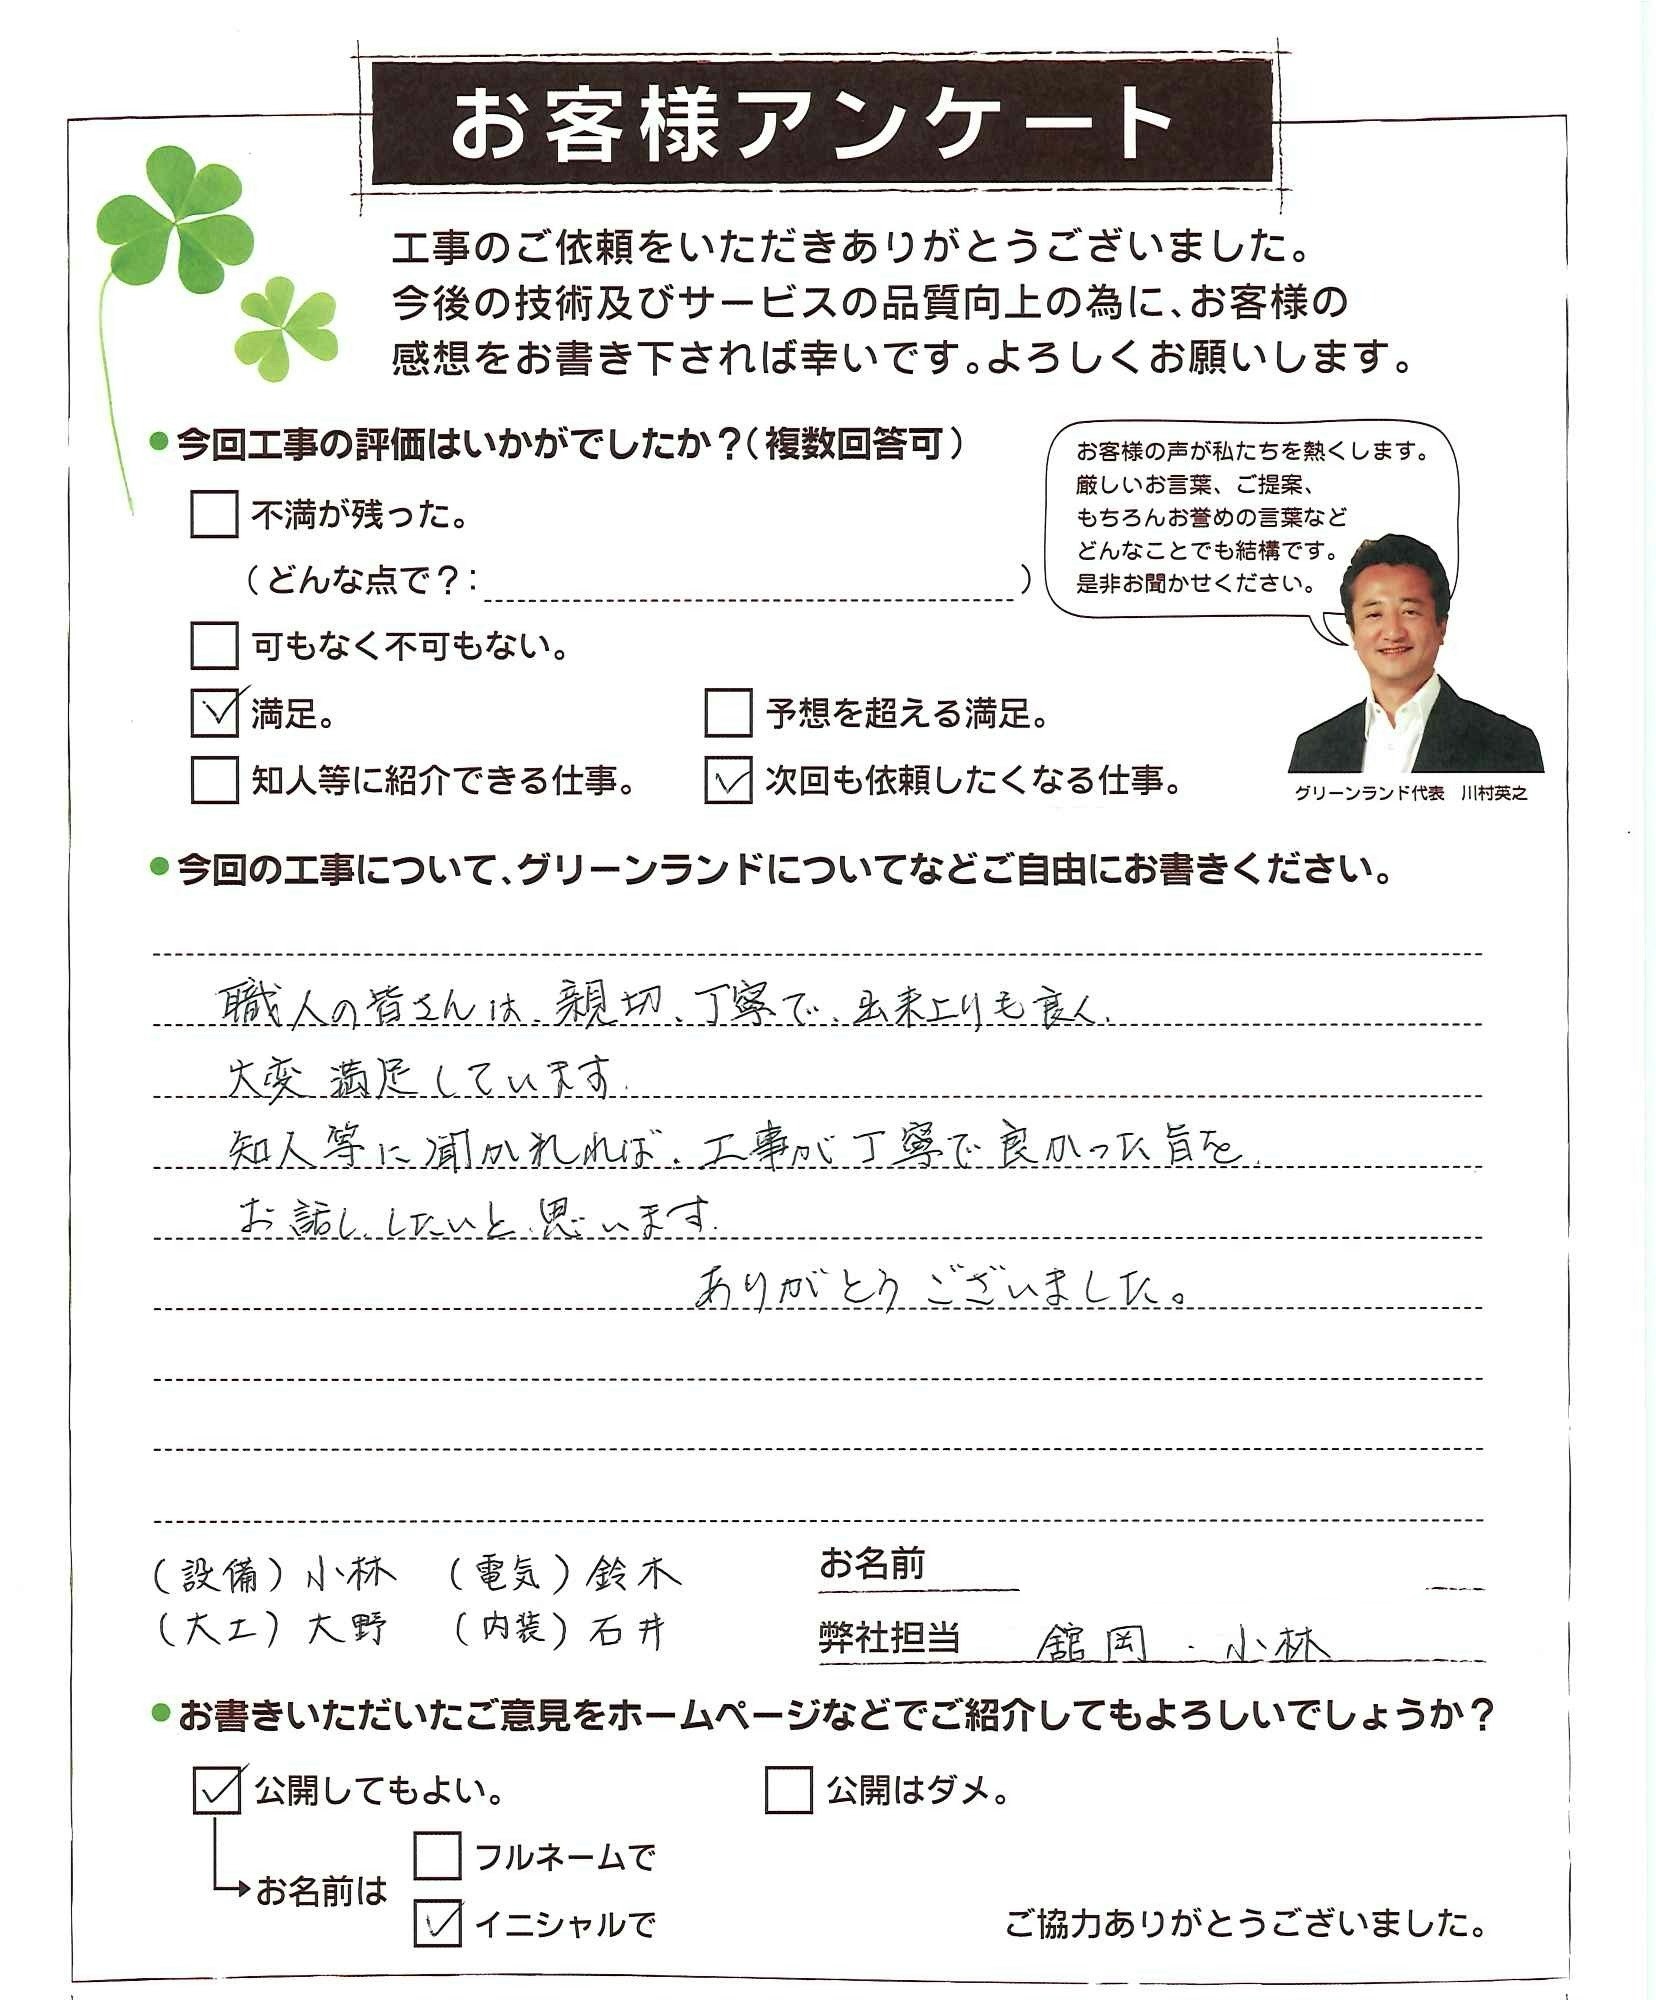 お客様アンケート
工事のご依頼をいただきありがとうございました。
今後の技術及びサービスの品質向上の為に、お客様の
感想をお書き下されば幸いです。よろしくお願いします。
●今回工事の評価はいかがでしたか？（複数回答可）
不満が残った。
（どんな点で？： ）
可もなく不可もない。
満足。
予想を超える満足。
知人等に紹介できる仕事。
次回も依頼したくなる仕事。
お客様の声が私たちを熱くします。
厳しいお言葉、ご提案、
もちろんお誉めの言葉など
どんなことでも結構です。
是非お聞かせください。
グリーンランド代表　川村英之
●今回の工事について、グリーンランドについてなどご自由にお書きください。
職人の皆さんは、親切、丁寧で、出来上りも良く、
大変満足しています。
知人等に聞かれれば、工事が丁寧で良かった旨を、
お話ししたいと思います。
ありがとうございました。
（設備）小林　（電気）鈴木
（大工）大野　（内装）石井
お名前
弊社担当　舘岡・小林
●お書きいただいたご意見をホームページなどでご紹介してもよろしいでしょうか？
公開してもよい。
公開はダメ。
お名前は
フルネームで
イニシャルで
ご協力ありがとうございました。